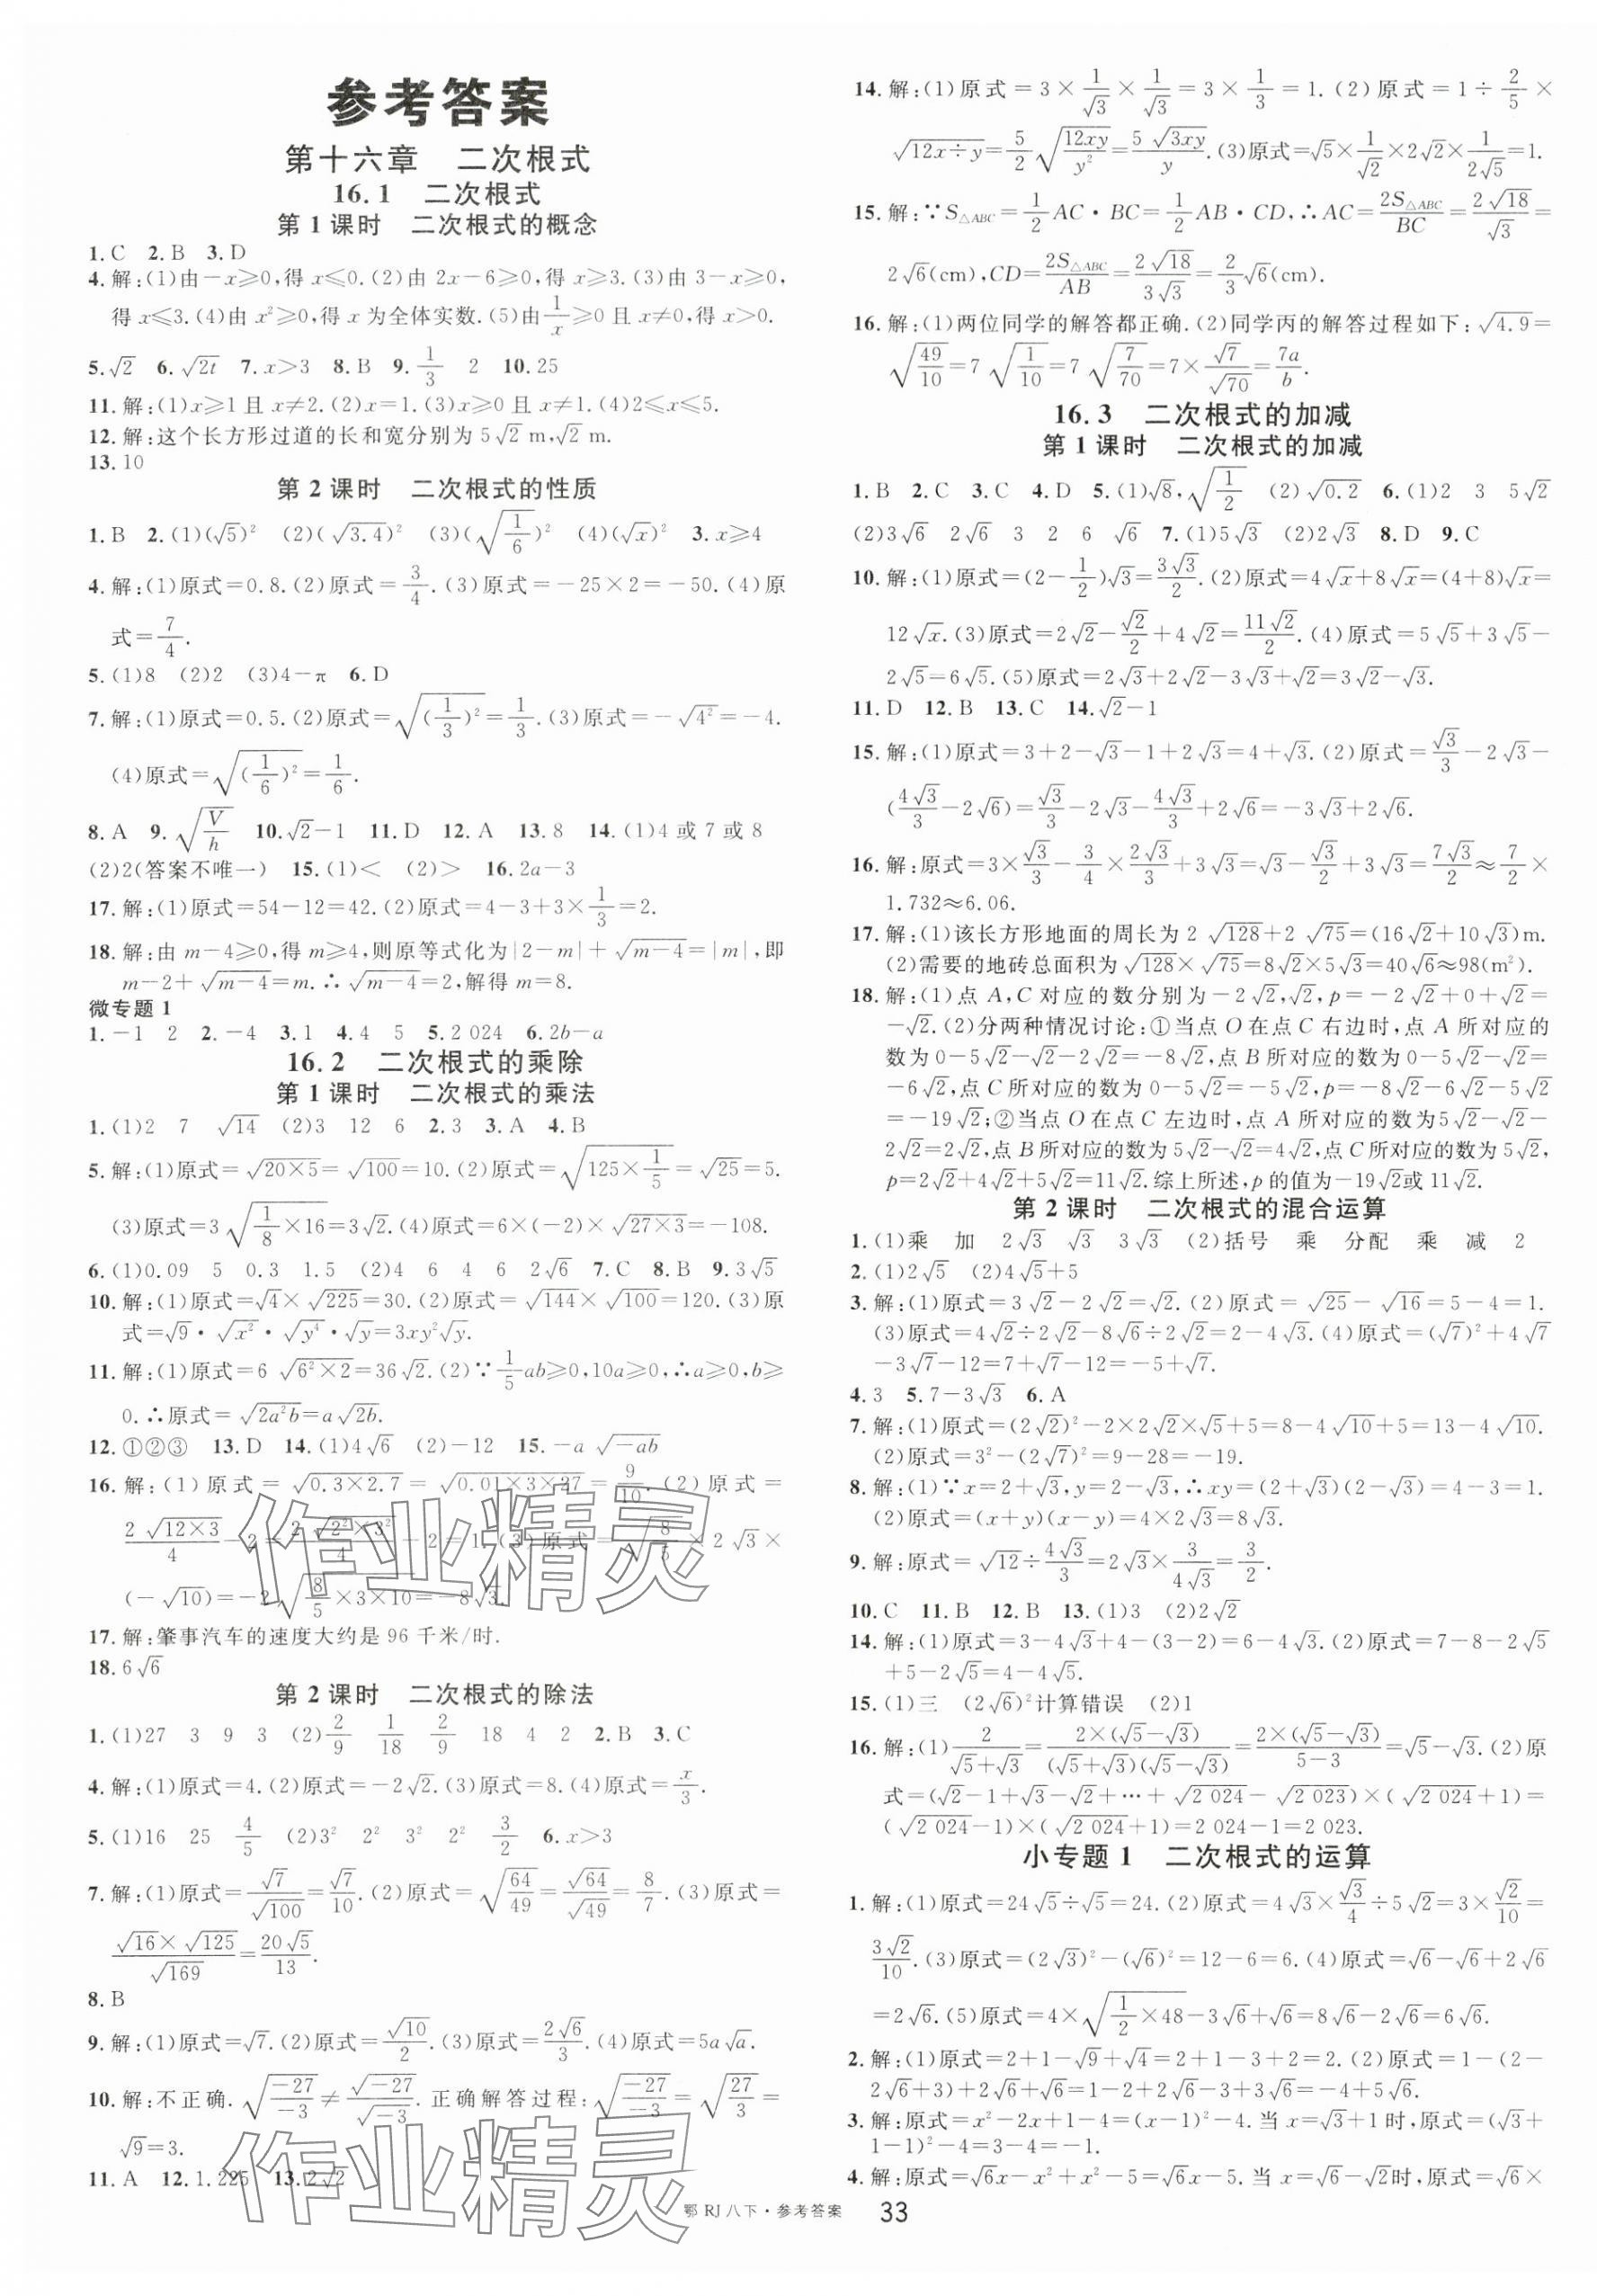 参考答案
第十六章　二次根式
16.1　二次根式
第1课时　二次根式的概念
1.C　2.B　3.D
4.解:(1)由−x≥0,得x≤0.(2)由2x−6≥0,得x≥3.(3)由3−x≥0,
得x≤3.(4)由x²≥0,得x为全体实数.(5)由1/x≥0且x≠0,得x>0.
5.√2　6.√(2t)　7.x>3　8.B　9.1/3　2　10.25
11.解:(1)x≥1且x≠2.(2)x=1.(3)x≥0且x≠1.(4)2≤x≤5.
12.解:这个长方形过道的长和宽分别为5√2 m,√2 m.
13.10
第2课时　二次根式的性质
1.B　2.(1)(√5)²　(2)(√3.4)²　(3)(√(1/6))²　(4)(√x)²　3.x≥4
4.解:(1)原式=0.8.(2)原式=3/4.(3)原式=−25×2=−50.(4)原
式=7/4.
5.(1)8　(2)2　(3)4−π　6.D
7.解:(1)原式=0.5.(2)原式=√((1/3)²)=1/3.(3)原式=−√(4²)=−4.
(4)原式=√((1/6)²)=1/6.
8.A　9.√(V/h)　10.√2−1　11.D　12.A　13.8　14.(1)4或7或8
(2)2(答案不唯一)　15.(1)<　(2)>　16.2a−3
17.解:(1)原式=54−12=42.(2)原式=4−3+3×1/3=2.
18.解:由m−4≥0,得m≥4,则原等式化为|2−m|+√(m−4)=|m|,即
m−2+√(m−4)=m.∴√(m−4)=2,解得m=8.
微专题1
1.−1　2　2.−4　3.1　4.4　5　5.2 024　6.2b−a
16.2　二次根式的乘除
第1课时　二次根式的乘法
1.(1)2　7　√14　(2)3　12　6　2.3　3.A　4.B
5.解:(1)原式=√(20×5)=√100=10.(2)原式=√(125×1/5)=√25=5.
(3)原式=3√(1/8×16)=3√2.(4)原式=6×(−2)×√(27×3)=−108.
6.(1)0.09　5　0.3　1.5　(2)4　6　4　6　2√6　7.C　8.B　9.3√5
10.解:(1)原式=√4×√225=30.(2)原式=√144×√100=120.(3)原
式=√9·√(x²)·√(y⁴)·√y=3xy²√y.
11.解:(1)原式=6√(6²×2)=36√2.(2)∵1/5ab≥0,10a≥0,∴a≥0,b≥
0.∴原式=√(2a²b)=a√(2b).
12.①②③　13.D　14.(1)4√6　(2)−12　15.−a√(−ab)
16.解:(1)原式=√(0.3×2.7)=√(0.01×3×27)=9/10.(2)原式=
2√(12×3)/4−2=2√(2²×3²)/4−2=1.(3)原式=√(8/5)×2√3×
(−√10)=−2√(8/5×3×10)=−8√3.
17.解:肇事汽车的速度大约是96千米/时.
18.6√6
第2课时　二次根式的除法
1.(1)27　3　9　3　(2)2/9　1/18　2/9　18　4　2　2.B　3.C
4.解:(1)原式=4.(2)原式=−2√2.(3)原式=8.(4)原式=x/3.
5.(1)16　25　4/5　(2)3²　2²　3²　2²　3/2　6.x>3
7.解:(1)原式=√7/√100=√7/10.(2)原式=√(64/49)=√64/√49=8/7.(3)原式=
√16×√125/√169=20√5/13.
8.B
9.解:(1)原式=√7.(2)原式=√10/2.(3)原式=2√6/3.(4)原式=5a√a.
10.解:不正确.√(−27/−3)≠√−27/√−3.正确解答过程:√(−27/−3)=√(27/3)=
√9=3.
11.A　12.1.225　13.2√2
14.解:(1)原式=3×1/√3×1/√3=3×1/3=1.(2)原式=1÷2/5×
√(12x÷y)=5/2√(12xy/y²)=5√(3xy)/y.(3)原式=√5×1/√2×2√2×1/(2√5)=1.
15.解:∵S△ABC=1/2AC·BC=1/2AB·CD,∴AC=2S△ABC/BC=2√18/√3=
2√6(cm),CD=2S△ABC/AB=2√18/(3√3)=2/3√6(cm).
16.解:(1)两位同学的解答都正确.(2)同学丙的解答过程如下:√4.9=
√(49/10)=7√(1/10)=7√(7/70)=7×√7/√70=7a/b.
16.3　二次根式的加减
第1课时　二次根式的加减
1.B　2.C　3.C　4.D　5.(1)√8,√(1/2)　(2)√0.2　6.(1)2　3　5√2
(2)3√6　2√6　3　2　6　√6　7.(1)5√3　(2)2√3　8.D　9.C
10.解:(1)原式=(2−1/2)√3=3√3/2.(2)原式=4√x+8√x=(4+8)√x=
12√x.(3)原式=2√2−√2/2+4√2=11√2/2.(4)原式=5√5+3√5−
2√5=6√5.(5)原式=2√3+2√2−3√3+√2=3√2−√3.
11.D　12.B　13.C　14.√2−1
15.解:(1)原式=3+2−√3−1+2√3=4+√3.(2)原式=√3/3−2√3−
(4√3/3−2√6)=√3/3−2√3−4√3/3+2√6=−3√3+2√6.
16.解:原式=3×√3/3−3/4×2√3/3+3√3=√3−√3/2+3√3=7√3/2≈7/2×
1.732≈6.06.
17.解:(1)该长方形地面的周长为2√128+2√75=(16√2+10√3)m.
(2)需要的地砖总面积为√128×√75=8√2×5√3=40√6≈98(m²).
18.解:(1)点A,C对应的数分别为−2√2,√2,p=−2√2+0+√2=
−√2.(2)分两种情况讨论:①当点O在点C右边时,点A所对应的
数为0−5√2−√2−2√2=−8√2,点B所对应的数为0−5√2−√2=
−6√2,点C所对应的数为0−5√2=−5√2,p=−8√2−6√2−5√2
=−19√2;②当点O在点C左边时,点A所对应的数为5√2−√2−
2√2=2√2,点B所对应的数为5√2−√2=4√2,点C所对应的数为5√2,
p=2√2+4√2+5√2=11√2.综上所述,p的值为−19√2或11√2.
第2课时　二次根式的混合运算
1.(1)乘　加　2√3　√3　3√3　(2)括号　乘　分配　乘　减　2
2.(1)2√5　(2)4√5+5
3.解:(1)原式=3√2−2√2=√2.(2)原式=√25−√16=5−4=1.
(3)原式=4√2÷2√2−8√6÷2√2=2−4√3.(4)原式=(√7)²+4√7
−3√7−12=7+√7−12=−5+√7.
4.3　5.7−3√3　6.A
7.解:(1)原式=(2√2)²−2×2√2×√5+5=8−4√10+5=13−4√10.
(2)原式=3²−(2√7)²=9−28=−19.
8.解:(1)∵x=2+√3,y=2−√3,∴xy=(2+√3)(2−√3)=4−3=1.
(2)原式=(x+y)(x−y)=4×2√3=8√3.
9.解:原式=√12÷4√3/3=2√3×3/(4√3)=3/2.
10.C　11.B　12.B　13.(1)3　(2)2√2
14.解:(1)原式=3−4√3+4−(3−2)=6−4√3.(2)原式=7−8−2√5
+5−2√5=4−4√5.
15.(1)三　(2√6)²计算错误　(2)1
16.解:(1)2/(√5+√3)=2×(√5−√3)/((√5+√3)(√5−√3))=2×(√5−√3)/(5−3)=√5−√3.(2)原
式=(√2−1+√3−√2+⋯+√2 024−√2 023)×(√2 024+1)=
(√2 024−1)×(√2 024+1)=2 024−1=2 023.
小专题1　二次根式的运算
1.解:(1)原式=24√5÷√5=24.(2)原式=4√3×√3/4÷5√2=3×√2/10=
3√2/10.(3)原式=(2√3)²−(√6)²=12−6=6.(4)原式=√6−√6+2√6
=2√6.(5)原式=4×√(1/2×48)−3√6+√6=8√6−2√6=6√6.
2.解:(1)原式=2+1−√9+√4=2+1−3+2=2.(2)原式=1−(2−
2√6+3)+2√6+√6=1−2+2√6−3+3√6=−4+5√6.
3.解:原式=x²−2x+1−4=(x−1)²−4.当x=√3+1时,原式=(√3+
1−1)²−4=3−4=−1.
4.解:原式=√6x−x²+x²−5=√6x−5.当x=√6−√2时,原式=√6×
鄂RJ八下·参考答案　33
作业精灵
作业精灵